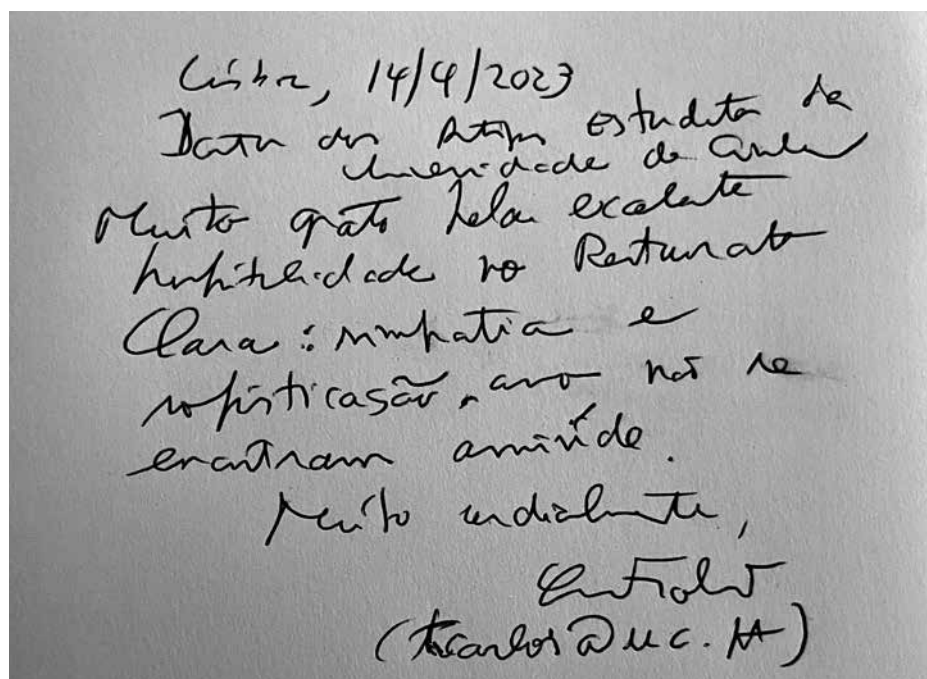 Lisboa, 14/4/2023
Data dos Antigos Estudantes da
Universidade de Coimbra
Muito grato pela excelente
hospitalidade no Restaurante
Clara: simpatia e
sofisticação, não se
encontram amiúde.
Muito cordialmente,